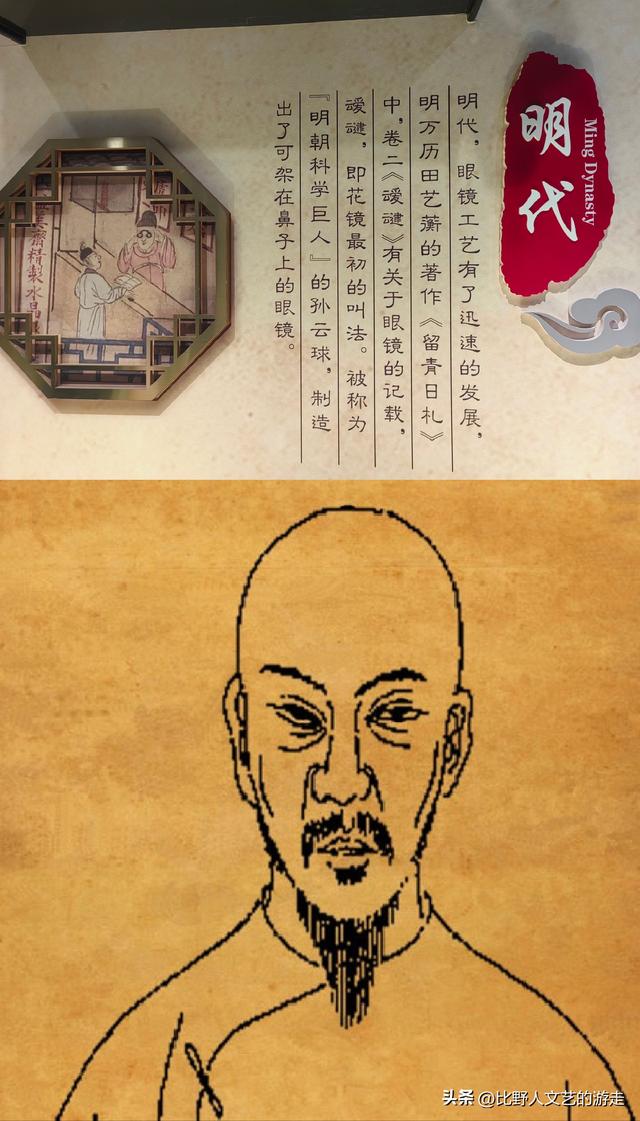 明代
Ming Dynasty
明代，眼镜工艺有了迅速的发展，
明万历田艺蘅的著作《留青日札》
中，卷二《叆叇》有关于眼镜的记载，
叆叇，即花镜最初的叫法。被称为
『明朝科学巨人』的孙云球，制造
出了可架在鼻子上的眼镜。
精製水晶
头条 @比野人文艺的游走